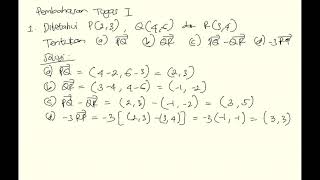 Pembahasan Tugas I
1. Diketahui P(2,3), Q(4,6) dan R(3,4)
Tentukan (a) PQ (b) QR (c) PQ - QR (d) -3 RP
Solusi:
(a) PQ = (4-2, 6-3) = (2,3)
(b) QR = (3-4, 4-6) = (-1, -2)
(c) PQ - QR = (2,3) - (-1,-2) = (3,5)
(d) -3 RP = -3 [(2,3) - (3,4)] = -3(-1,-1) = (3,3)